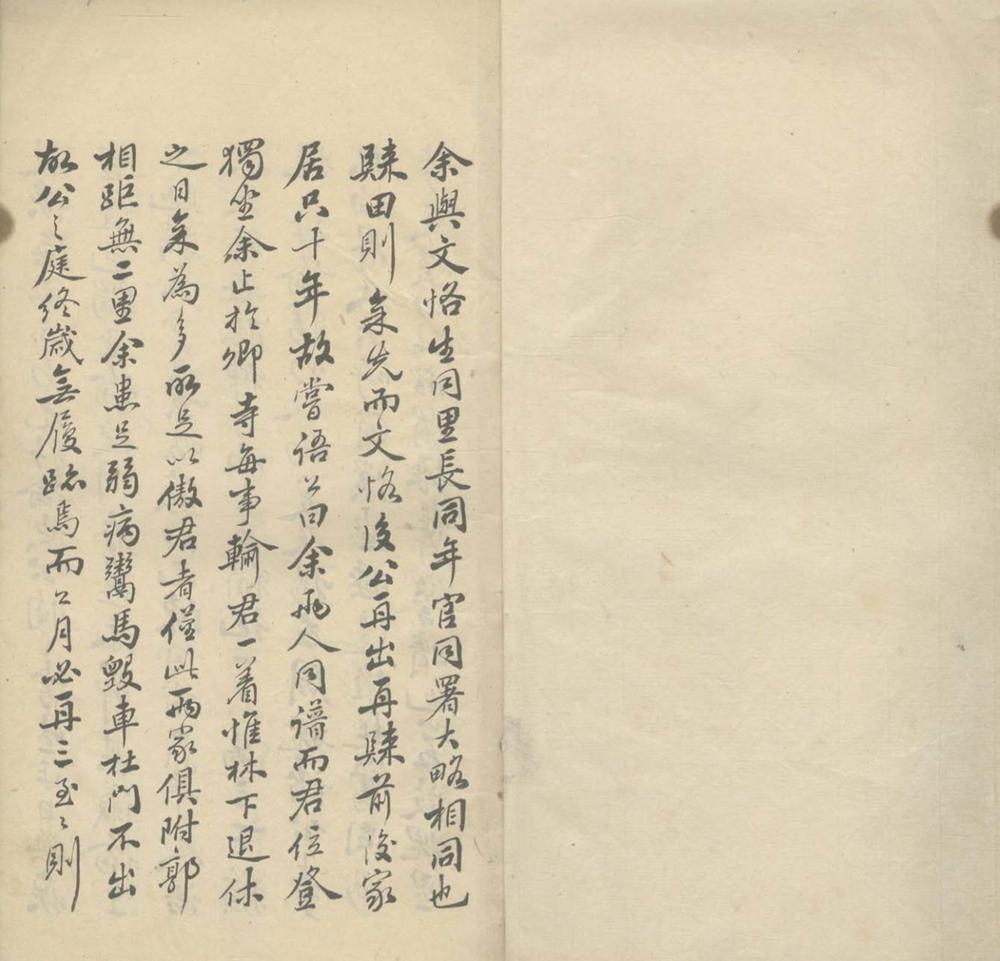 余與文恪生同里長同年官同署大略相同也
歸田則余先而文恪後公再出再歸前後家
居只十年故嘗語公曰余兩人同譜而君位登
獨坐余止於卿寺每事輸君一着惟林下退休
之日余為多所足以傲君者僅此兩家俱附郭
相距無二里余患足弱病鬻馬毀車杜門不出
故公之庭終歲無履跡焉而公月必再三至〻則